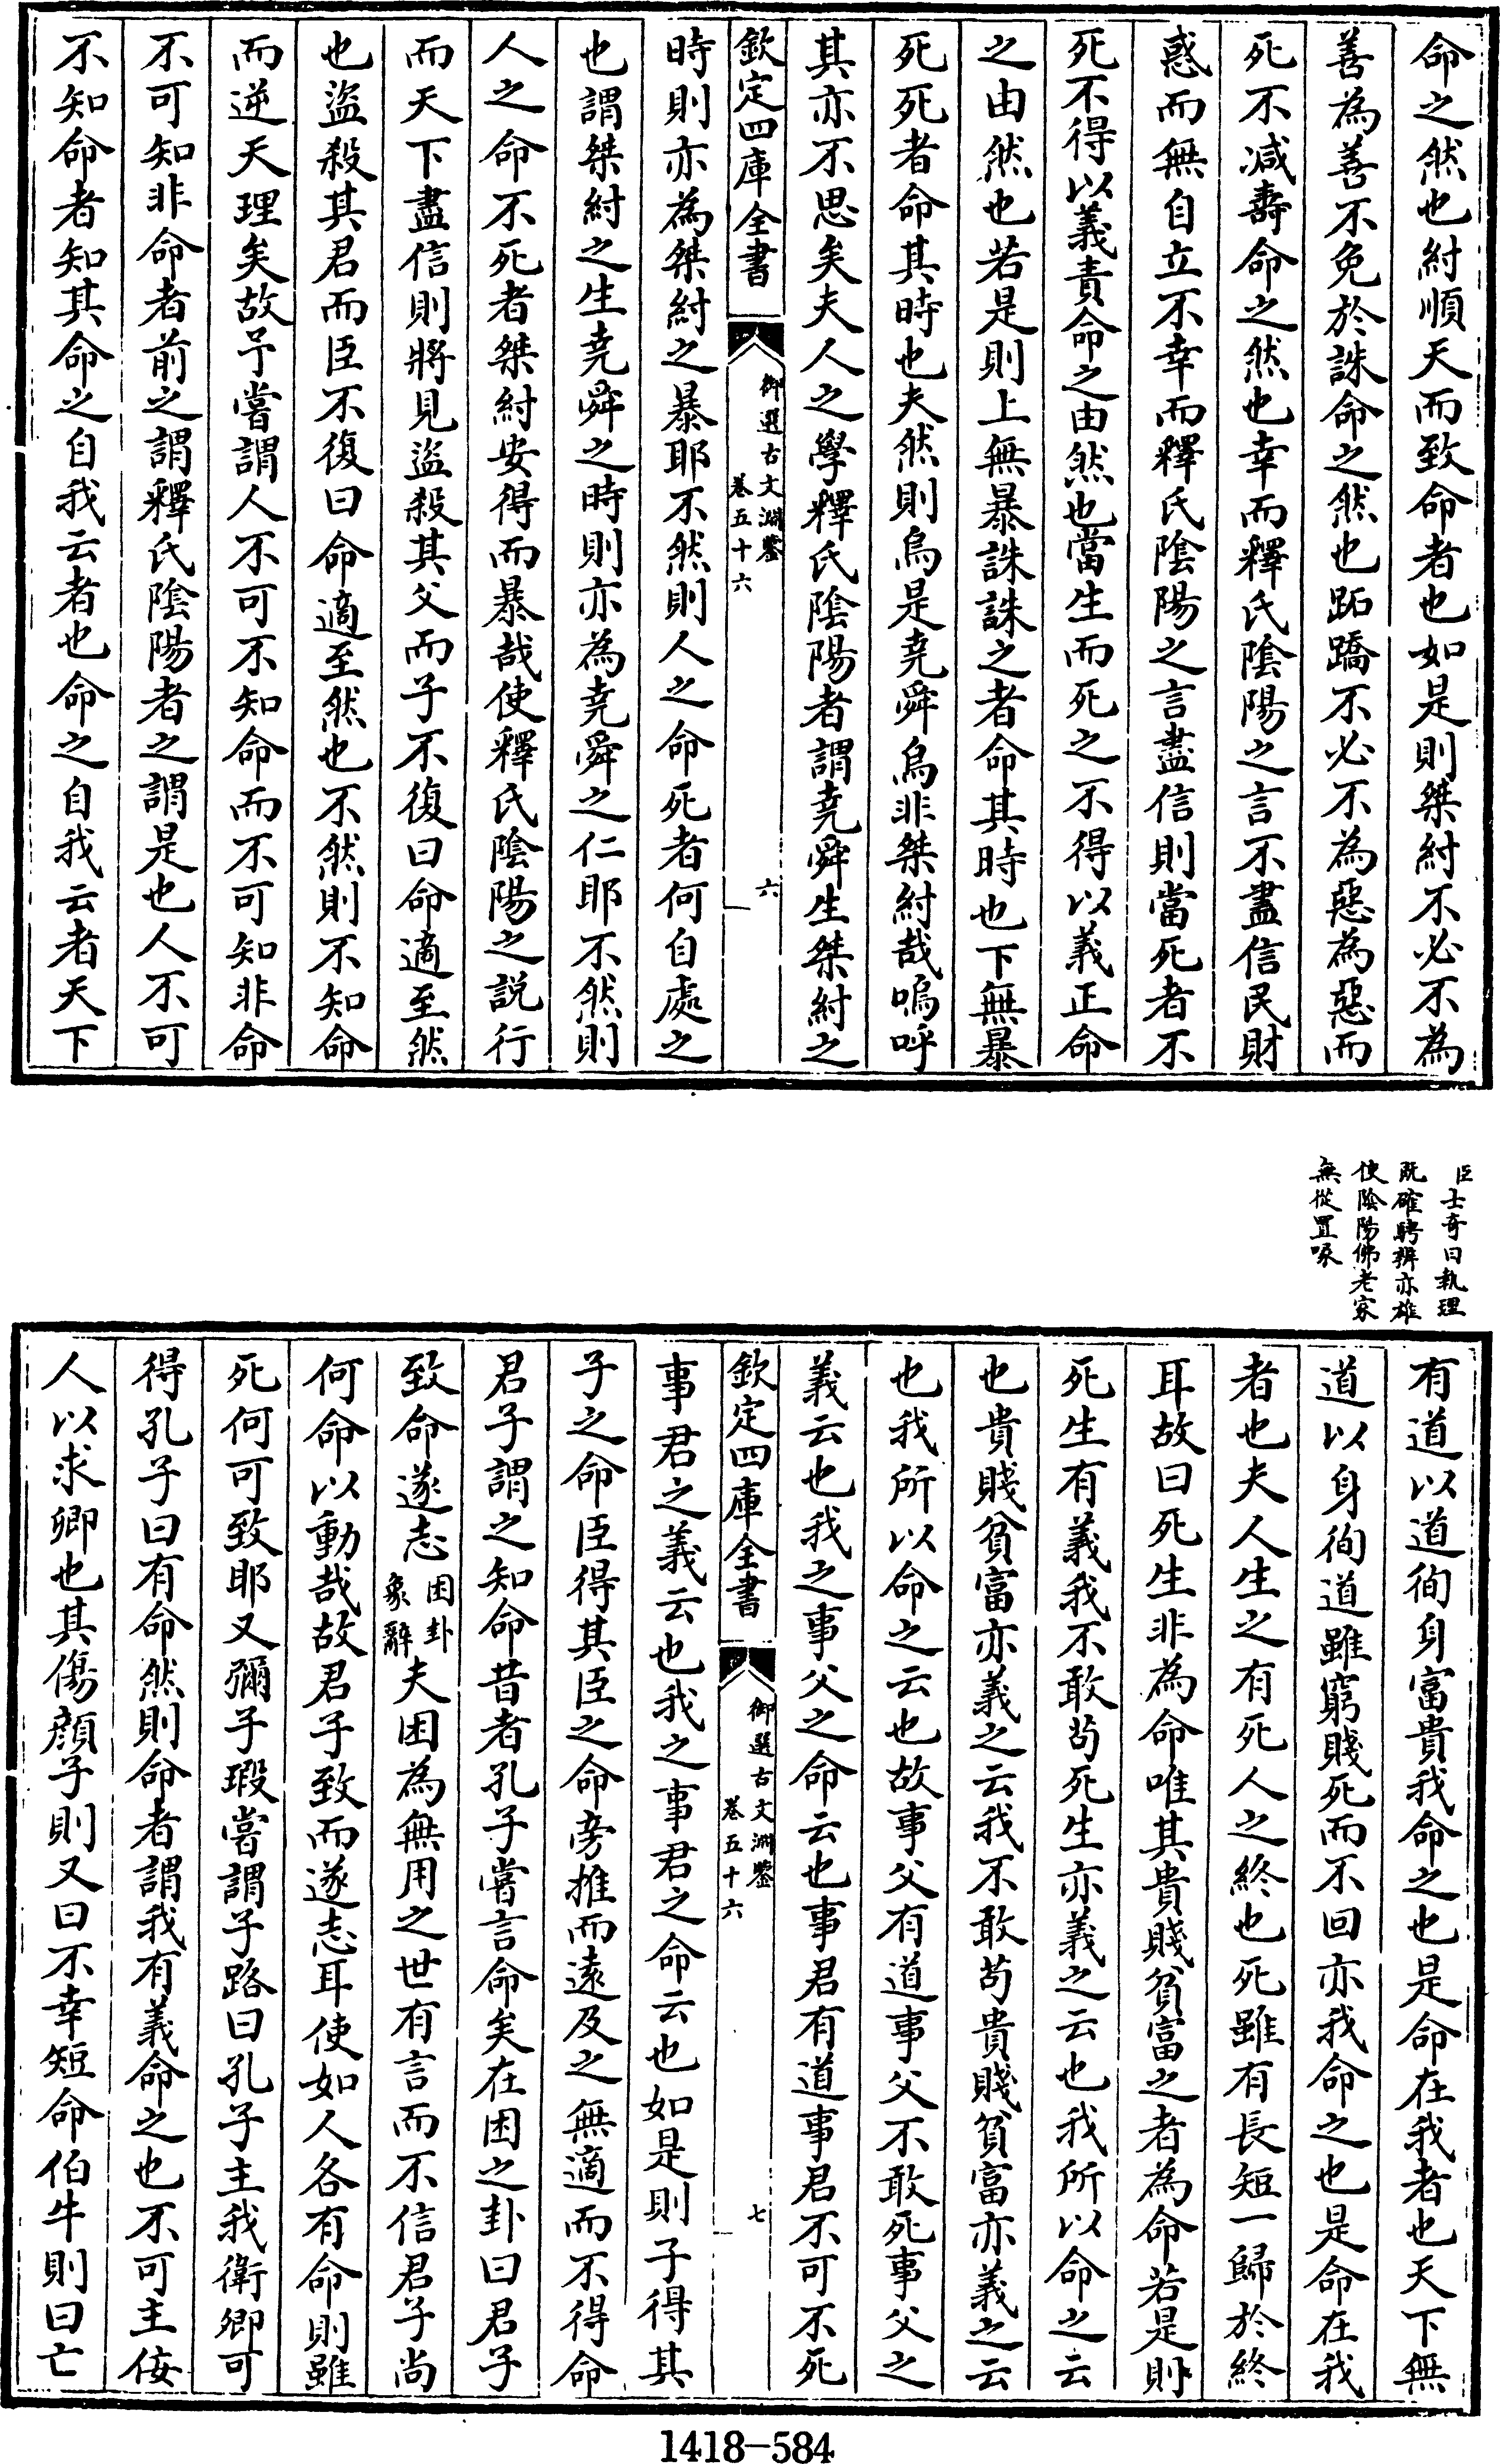 命之然也紂順天而致命者也如是則桀紂不必不為
善為善不免於誅命之然也跖蹻不必不為惡為惡而
死不減壽命之然也幸而釋氏陰陽之言不盡信民財
惑而無自立不幸而釋氏陰陽之言盡信則當死者不
死不得以義責命之由然也當生而死之不得以義正命
之由然也若是則上無暴誅誅之者命其時也下無暴
死死者命其時也夫然則烏是堯舜烏非桀紂哉嗚呼
其亦不思矣夫人之學釋氏陰陽者謂堯舜生桀紂之
欽定四庫全書
御選古文淵鑒
卷五十六
六
時則亦為桀紂之暴耶不然則人之命死者何自處之
也謂桀紂之生堯舜之時則亦為堯舜之仁耶不然則
人之命不死者桀紂安得而暴哉使釋氏陰陽之説行
而天下盡信則將見盜殺其父而子不復曰命適至然
也盜殺其君而臣不復曰命適至然也不然則不知命
而逆天理矣故予嘗謂人不可不知命而不可知非命
不可知非命者前之謂釋氏陰陽者之謂是也人不可
不知命者知其命之自我云者也命之自我云者天下
臣士奇曰執理
既確騁辨亦雄
使陰陽佛老家
無從置喙
有道以道徇身富貴我命之也是命在我者也天下無
道以身徇道雖窮賤死而不回亦我命之也是命在我
者也夫人生之有死人之終也死雖有長短一歸於終
耳故曰死生非為命唯其貴賤貧富之者為命若是則
死生有義我不敢苟死生亦義之云也我所以命之云
也貴賤貧富亦義之云我不敢苟貴賤貧富亦義之云
也我所以命之云也故事父有道事父不敢死事父之
義云也我之事父之命云也事君有道事君不可不死
欽定四庫全書
御選古文淵鑒
卷五十六
七
事君之義云也我之事君之命云也如是則子得其
子之命臣得其臣之命旁推而遠及之無適而不得命
君子謂之知命昔者孔子嘗言命矣在困之卦曰君子
致命遂志困卦象辭夫困為無用之世有言而不信君子尚
何命以動哉故君子致而遂志耳使如人各有命則雖
死何可致耶又彌子瑕嘗謂子路曰孔子主我衛卿可
得孔子曰有命然則命者謂我有義命之也不可主侫
人以求卿也其傷顔子則又曰不幸短命伯牛則曰亡
1418-584